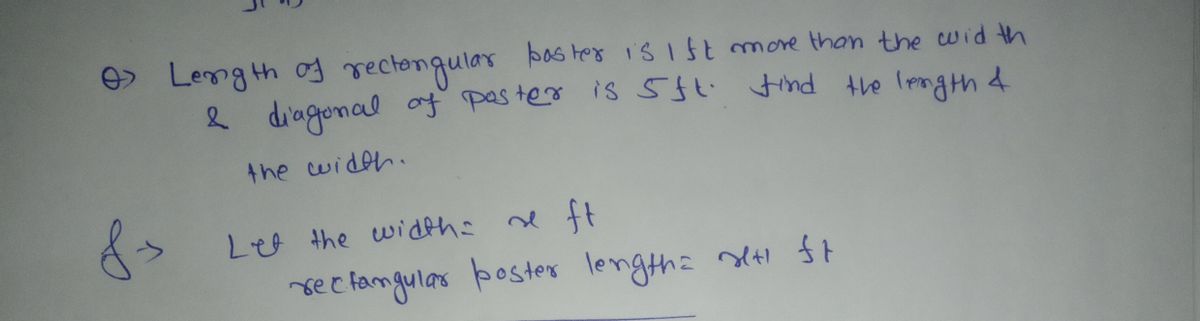 Q> Length of rectangular poster is 1 ft more than the width
& diagonal of poster is 5 ft. find the length &
the width.
Let the width = x ft
rectangular poster length = x+1 ft